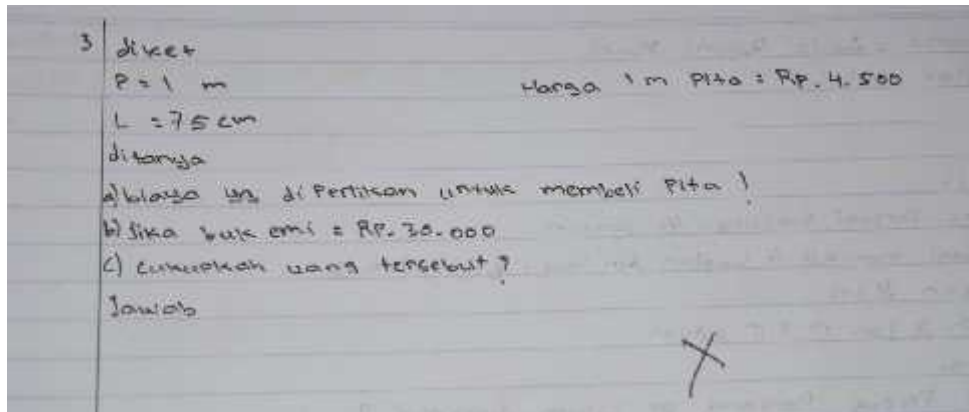 3 diket
P = 1 m Harga 1 m Pita = Rp. 4.500
L = 75 cm
ditanya
a) biaya yg di Perlukan untuk membeli Pita !
b) Jika buk emi = RP. 30.000
c) cukupkah uang tersebut ?
Jawab